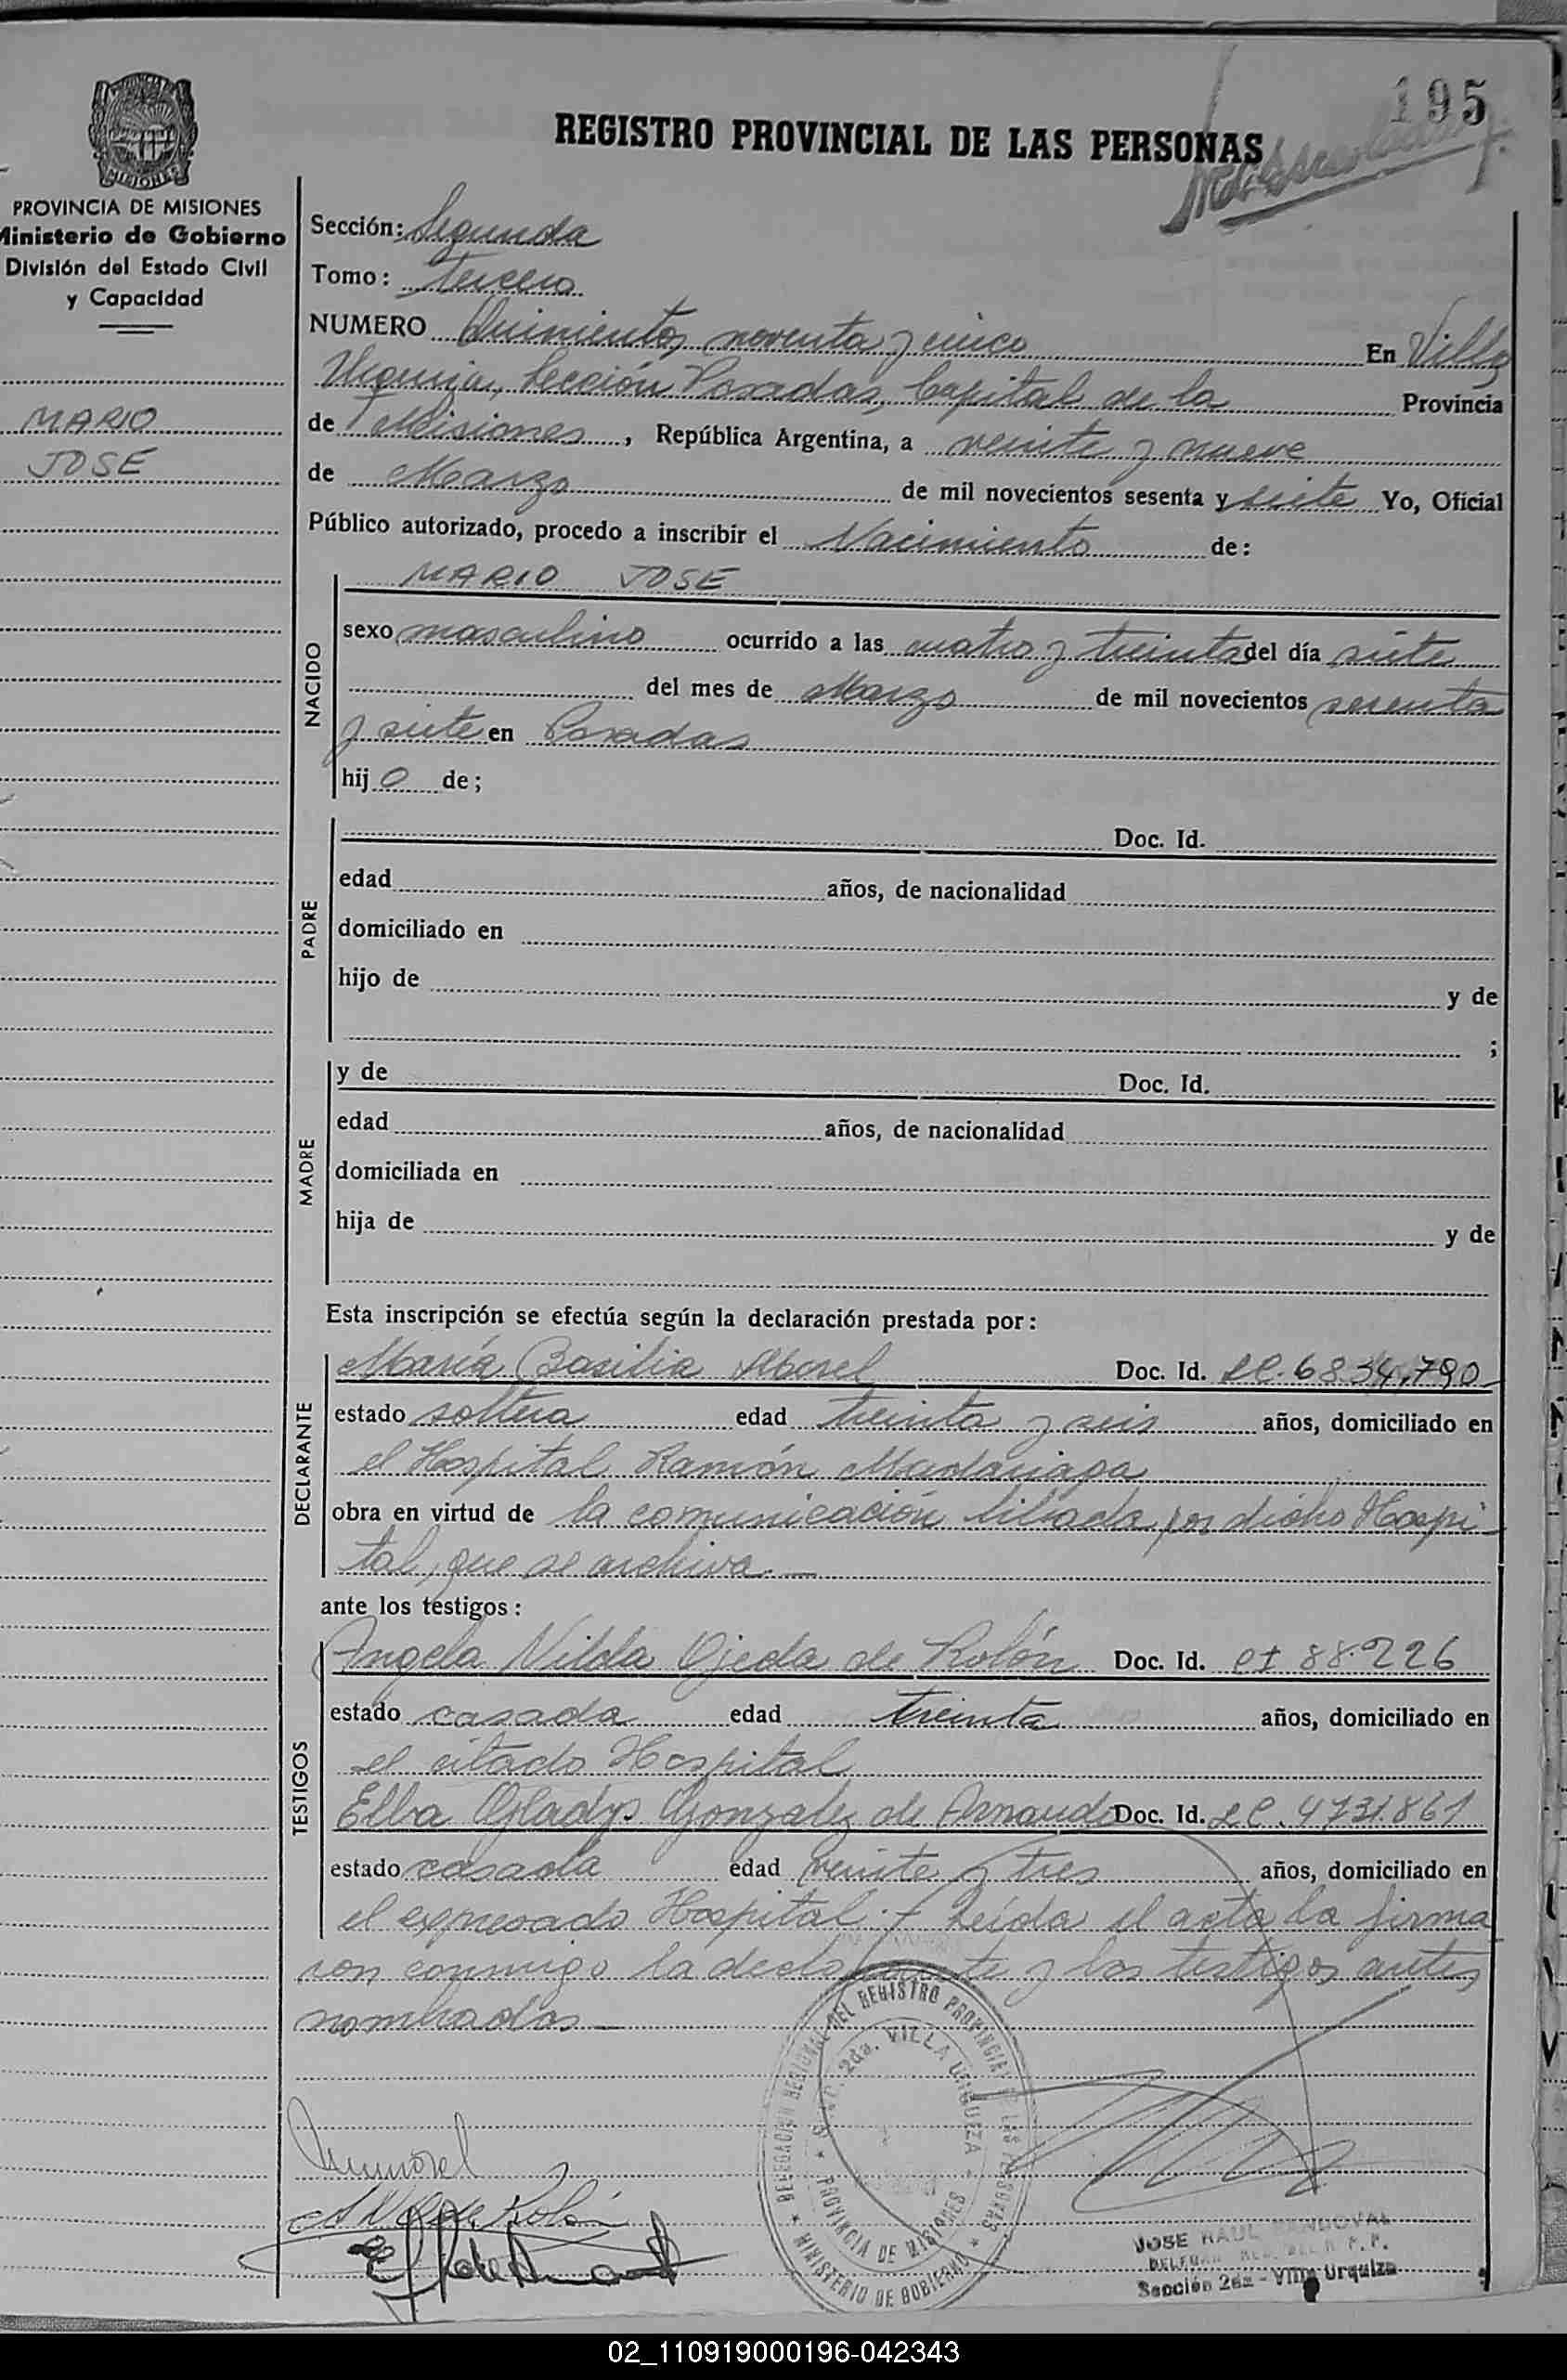 195
REGISTRO PROVINCIAL DE LAS PERSONAS
PROVINCIA DE MISIONES
Ministerio de Gobierno
División del Estado Civil
y Capacidad
MARIO
JOSE
Sección: Segunda
Tomo: Tercero
NUMERO Quinientos noventa y cinco En Villa
Urquiza, Sección Posadas, Capital de la Provincia
de Misiones, República Argentina, a veinte y nueve
de Marzo de mil novecientos sesenta y siete Yo, Oficial
Público autorizado, procedo a inscribir el Nacimiento de:
NACIDO
MARIO JOSE
sexo masculino ocurrido a las cuatro y treinta del día siete
del mes de Marzo de mil novecientos sesenta
y siete en Posadas
hijo de;
PADRE
Doc. Id.
edad años, de nacionalidad
domiciliado en
hijo de y de
;
MADRE
y de Doc. Id.
edad años, de nacionalidad
domiciliada en
hija de y de
Esta inscripción se efectúa según la declaración prestada por:
DECLARANTE
María Basilia Morel Doc. Id. LC. 6834,790
estado soltera edad treinta y seis años, domiciliado en
el Hospital Ramón Madariaga
obra en virtud de la comunicación librada por dicho Hospi-
tal, que se archiva.—
ante los testigos:
TESTIGOS
Angela Nilda Ojeda de Rolón Doc. Id. CI 88.226
estado casada edad treinta años, domiciliado en
el citado Hospital
Elba Gladys Gonzalez de Arnaudo Doc. Id. LC. 4731.861
estado casada edad veinte y tres años, domiciliado en
el expresado Hospital.- Leída el acta la firma
ron conmigo la declarante y los testigos antes
nombrados —
DELEGACION REGIONAL DEL REGISTRO PROVINCIAL DE LAS PERSONAS
2da. VILLA URQUIZA
PROVINCIA DE MISIONES
MINISTERIO DE GOBIERNO
de Rolón
JOSE RAUL SANDOVAL
Sección 2da - Villa Urquiza
02_110919000196-042343